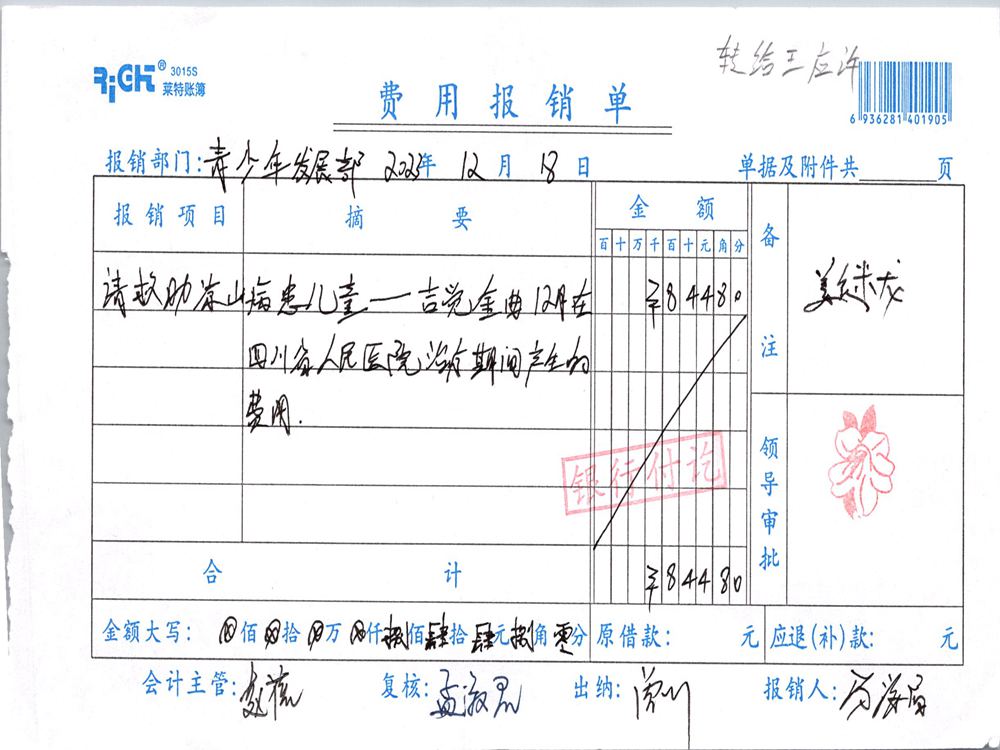 转给三应许
RiGHT® 3015S
莱特账簿
费用报销单
6 936281 401905
报销部门:青少年发展部 2023年 12月 18日 单据及附件共 页
报销项目 摘要 金额 备注
百十万千百十元角分
请救助凉山病患儿童——吉觉金曲12月在 ¥84480
四川省人民医院治疗期间产生的
费用.
姜继龙
银行付讫
领导审批
合计 ¥84480
金额大写: 佰 拾 万 仟捌佰肆拾肆元捌角零分 原借款: 元 应退(补)款: 元
会计主管: 复核: 孟淑君 出纳: 报销人: